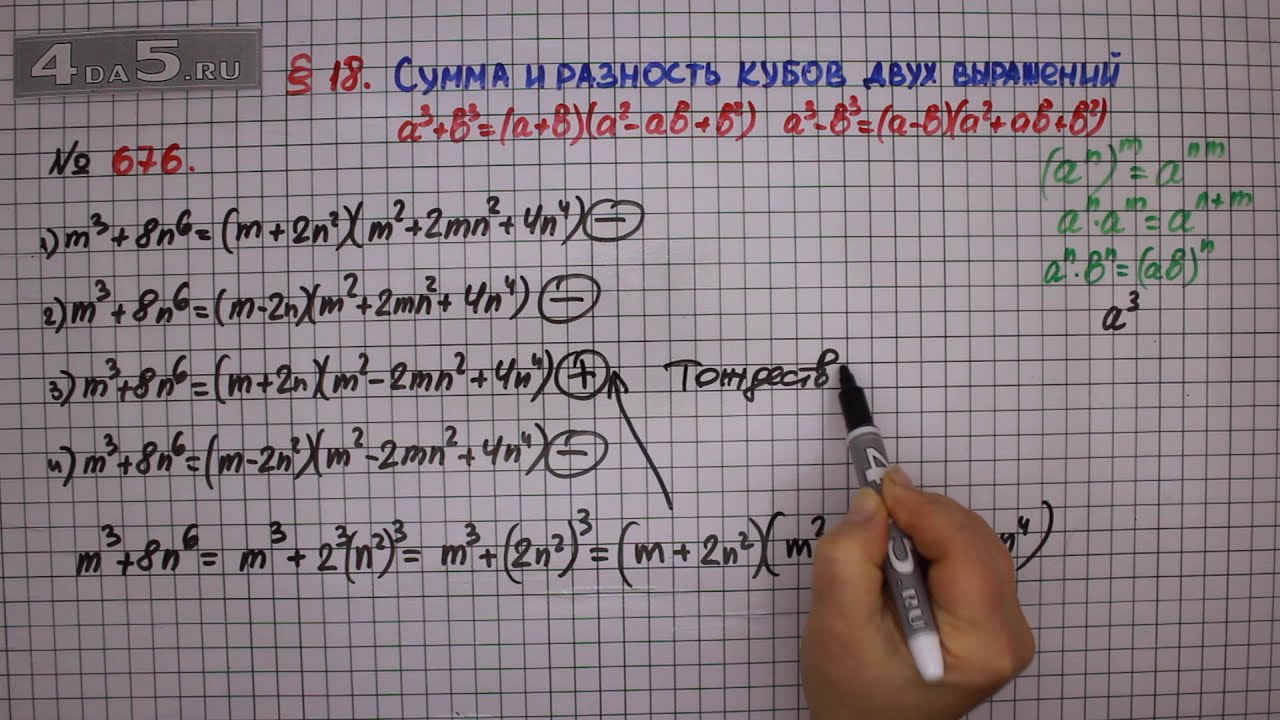 4DA5.RU
§ 18. Сумма и разность кубов двух выражений
a³+b³=(a+b)(a²-ab+b²) a³-b³=(a-b)(a²+ab+b²)
№ 676.
(aⁿ)ᵐ=aⁿᵐ
aⁿ·aᵐ=aⁿ⁺ᵐ
aⁿ·bⁿ=(ab)ⁿ
a³
1) m³+8n⁶=(m+2n²)(m²+2mn²+4n⁴) −
2) m³+8n⁶=(m-2n)(m²+2mn²+4n⁴) −
3) m³+8n⁶=(m+2n)(m²-2mn²+4n⁴) + Тождеств
4) m³+8n⁶=(m-2n²)(m²-2mn²+4n⁴) −
m³+8n⁶= m³+2³(n²)³= m³+(2n²)³=(m+2n²)(m² n⁴)
4
.RU